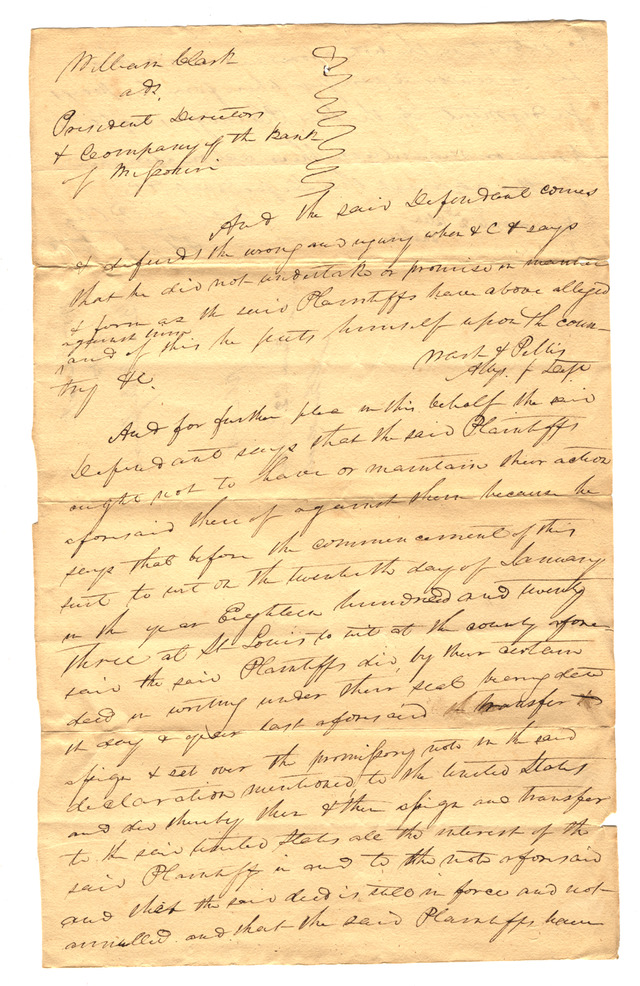 William Clark
ads.
President Directors
& Company of the Bank
of Missouri
And the said Defendant comes
& defends the wrong and injury when &C & says
that he did not undertake or promise in manner
& form as the said Plaintiffs have above alleged
against him
and of this he puts himself upon the coun-
try &c.
Wash & Pettis
Attys. f Deft
And for further plea in this behalf the said
Defendant says that the said Plaintiffs
ought not to have or maintain their action
aforesaid thereof against them because he
says that before the commencement of this
suit to wit on the twentieth day of January
in the year Eighteen hundred and twenty
three at St Louis to wit at the county afore-
said the said Plaintiffs did, by their certain
deed in writing under their seal bearing date
th day & year last aforesaid transfer
assign & set over the promissory note in the said
declaration mentioned to the United States
and did thereby then & there assign and transfer
to the said United States all the interest of the
said Plaintiff in and to the note aforesaid
and that the said deed is still in force and not
annulled and that the said Plaintiffs have